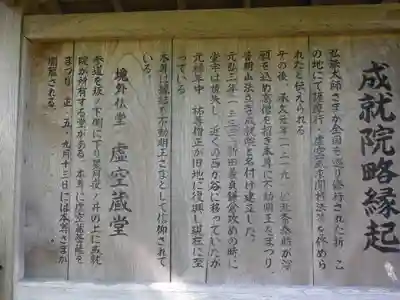 成就院略縁起
弘法大師さまが全国を巡り修行された折、こ
の地にて護摩行・虚空蔵求聞持法等を修めら
れたと伝えられる
その後、承久元年(一二一九)北条泰時が
願を込め高僧を招き本尊に不動明王をまつり、
普明山法立寺成就院と名付け建立した。
元弘三年(一三三三)新田義貞鎌倉攻めの時に
堂宇は焼失し、近くの西が谷に移っていたが
元禄年中 祐尊僧正が旧地に復興し現在に至
っている
本尊は縁結び不動明王さまとして信仰されて
いる。
境外仏堂 虚空蔵堂
参道を坂ノ下側に下り星月夜ノ井の上に成就
院が所有する堂がある。本尊に虚空蔵菩薩を
まつり、正・五・九月十三日には本尊さまが
開扉される。